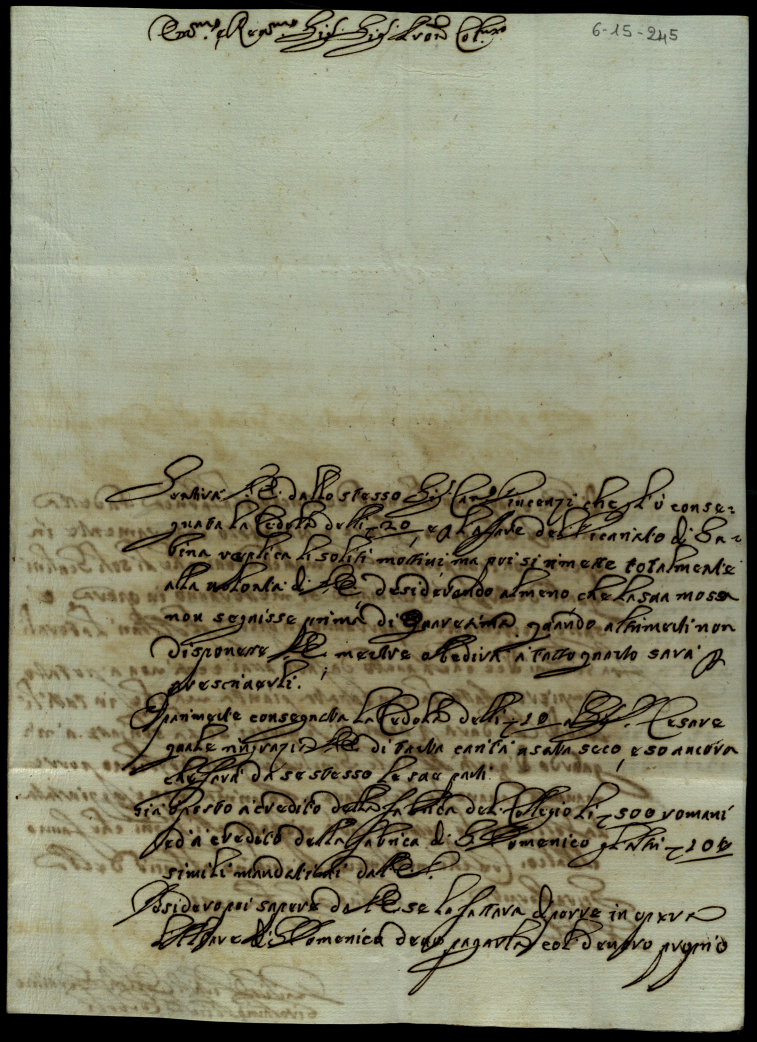 Em.mo e Rev.mo Sig. Sig. Pron Col.mo
6-15-245
Sentirà V.E. dallo stesso Sig. Can. Vincenzi che gl'ò conse-
gnata la Cedola delli 20, e per l'affare del Vicariato di Sa-
bina replica li soliti mottivi ma poi si rimette totalmente
alla volontà di V.E. desiderando almeno che la sua mossa
non seguisse prima di Quaresima, quando altrimenti non
disponere V.E. mentre obedirà a tutto quanto sarà per
prescriverli.
Parimente consegnata la Cedola delli 10 al Sig. Cesare
quale ringrazia V.E. di tanta carità usata seco, e so ancora
che farà da se stesso le sue parti.
Già posto a credito della fabrica del Collegio li 500 romani
ed a credito della fabrica di S. Domenico gl'altri 200
simili mandatimi dall'E.V.
Desidero poi sapere da V.E. se la fattura di porre in opera
l'Altare di S. Domenico devo pagarla col denaro proprio